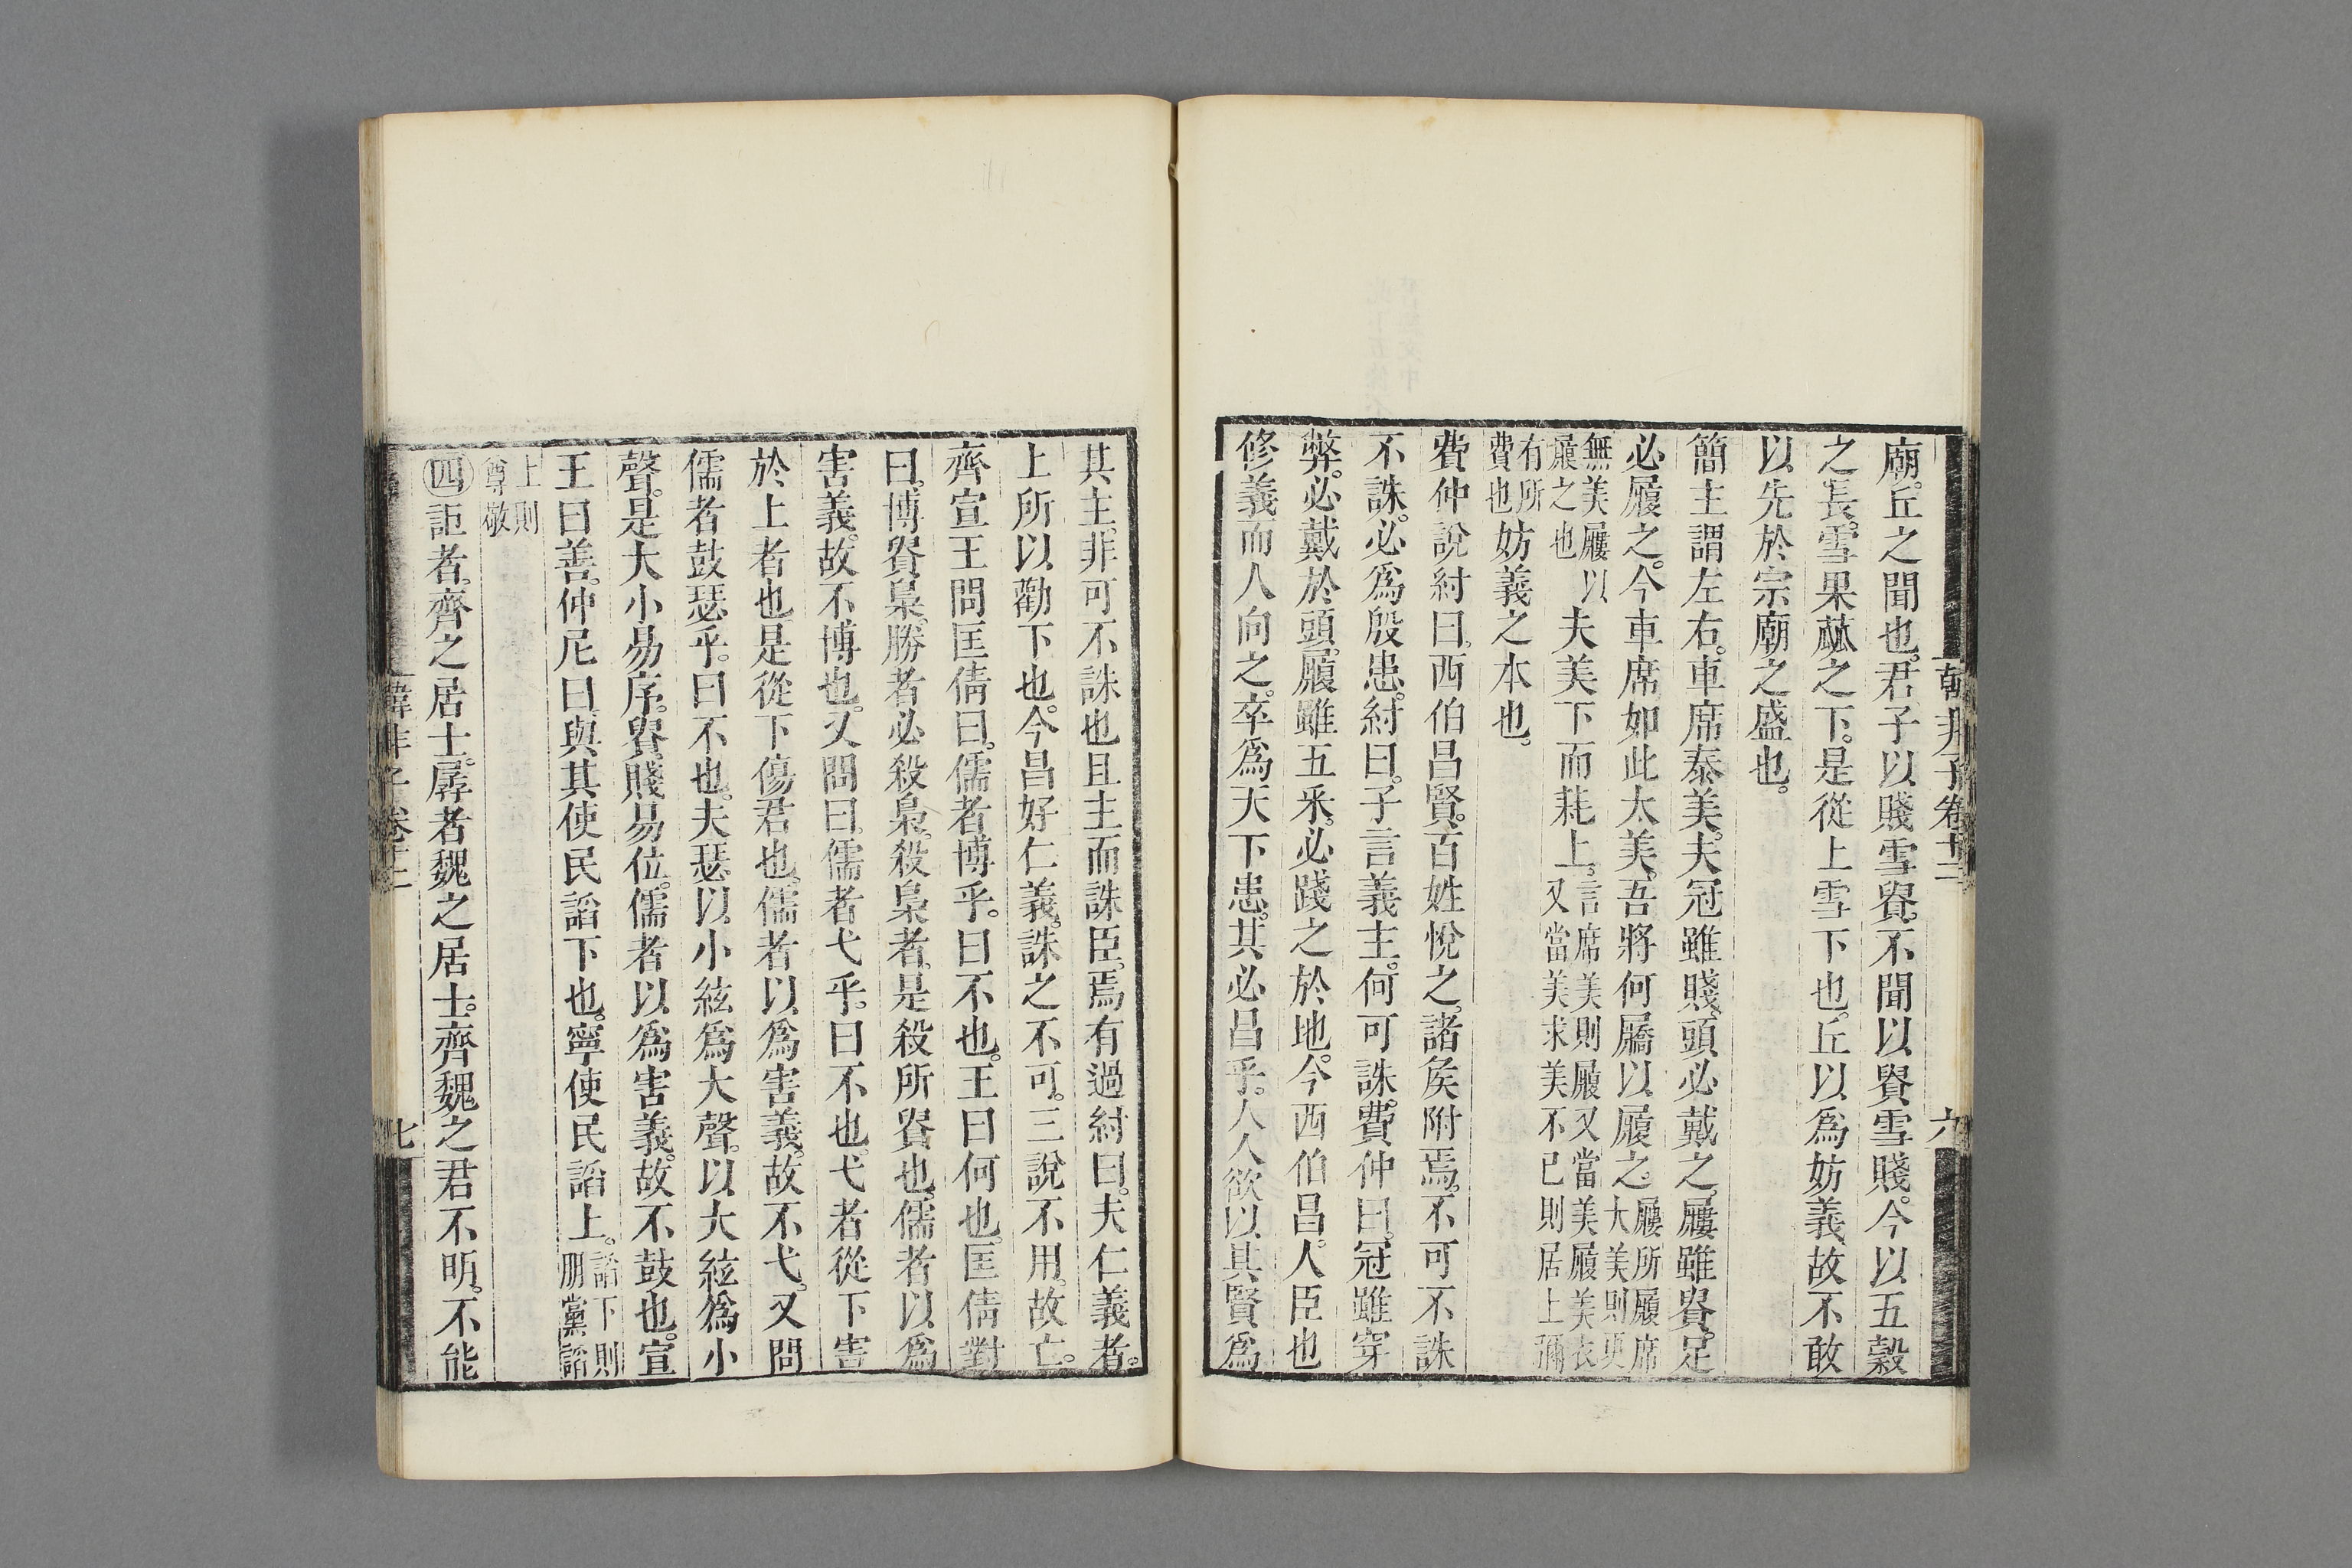 韓非子卷十二
六
廟。丘之聞也。君子以賤雪貴。不聞以貴雪賤。今以五穀
之長。雪果蓏之下。是從上雪下也。丘以爲妨義。故不敢
以先於宗廟之盛也。
簡主謂左右。車席泰美。夫冠雖賤。頭必戴之。屨雖貴。足
必履之。今車席如此太美。吾將何屩以履之。屨所履席大美則更
無美屨以履之也夫美下而耗上。言席美則履又當美履美衣又當美求美不已則居上彌
有所費也妨義之本也。
費仲說紂曰。西伯昌賢。百姓悅之。諸矦附焉。不可不誅
不誅。必爲殷患。紂曰。子言義主。何可誅。費仲曰。冠雖穿
弊。必戴於頭。履雖五采。必踐之於地。今西伯昌。人臣也
修義而人向之。卒爲天下患。其必昌乎。人人欲以其賢爲
其主。非可不誅也且主而誅臣。焉有過紂曰。夫仁義者。
上所以勸下也。今昌好仁義。誅之不可。三說不用。故亡。
齊宣王問匡倩曰。儒者博乎。曰不也。王曰何也。匡倩對
曰。博貴梟。勝者必殺梟。殺梟者。是殺所貴也。儒者以爲
害義。故不博也。又問曰。儒者弋乎。曰不也。弋者從下害
於上者也。是從下傷君也。儒者以爲害義。故不弋。又問
儒者鼓瑟乎。曰不也。夫瑟以小絃爲大聲。以大絃爲小
聲。是大小易序。貴賤易位。儒者以爲害義。故不鼓也。宣
王曰善。仲尼曰與其使民謟下也。寧使民謟上。謟下則朋黨謟
上則尊敬
四詎者。齊之居士。孱者魏之居士。齊魏之君不明。不能
韓非子卷十二
七